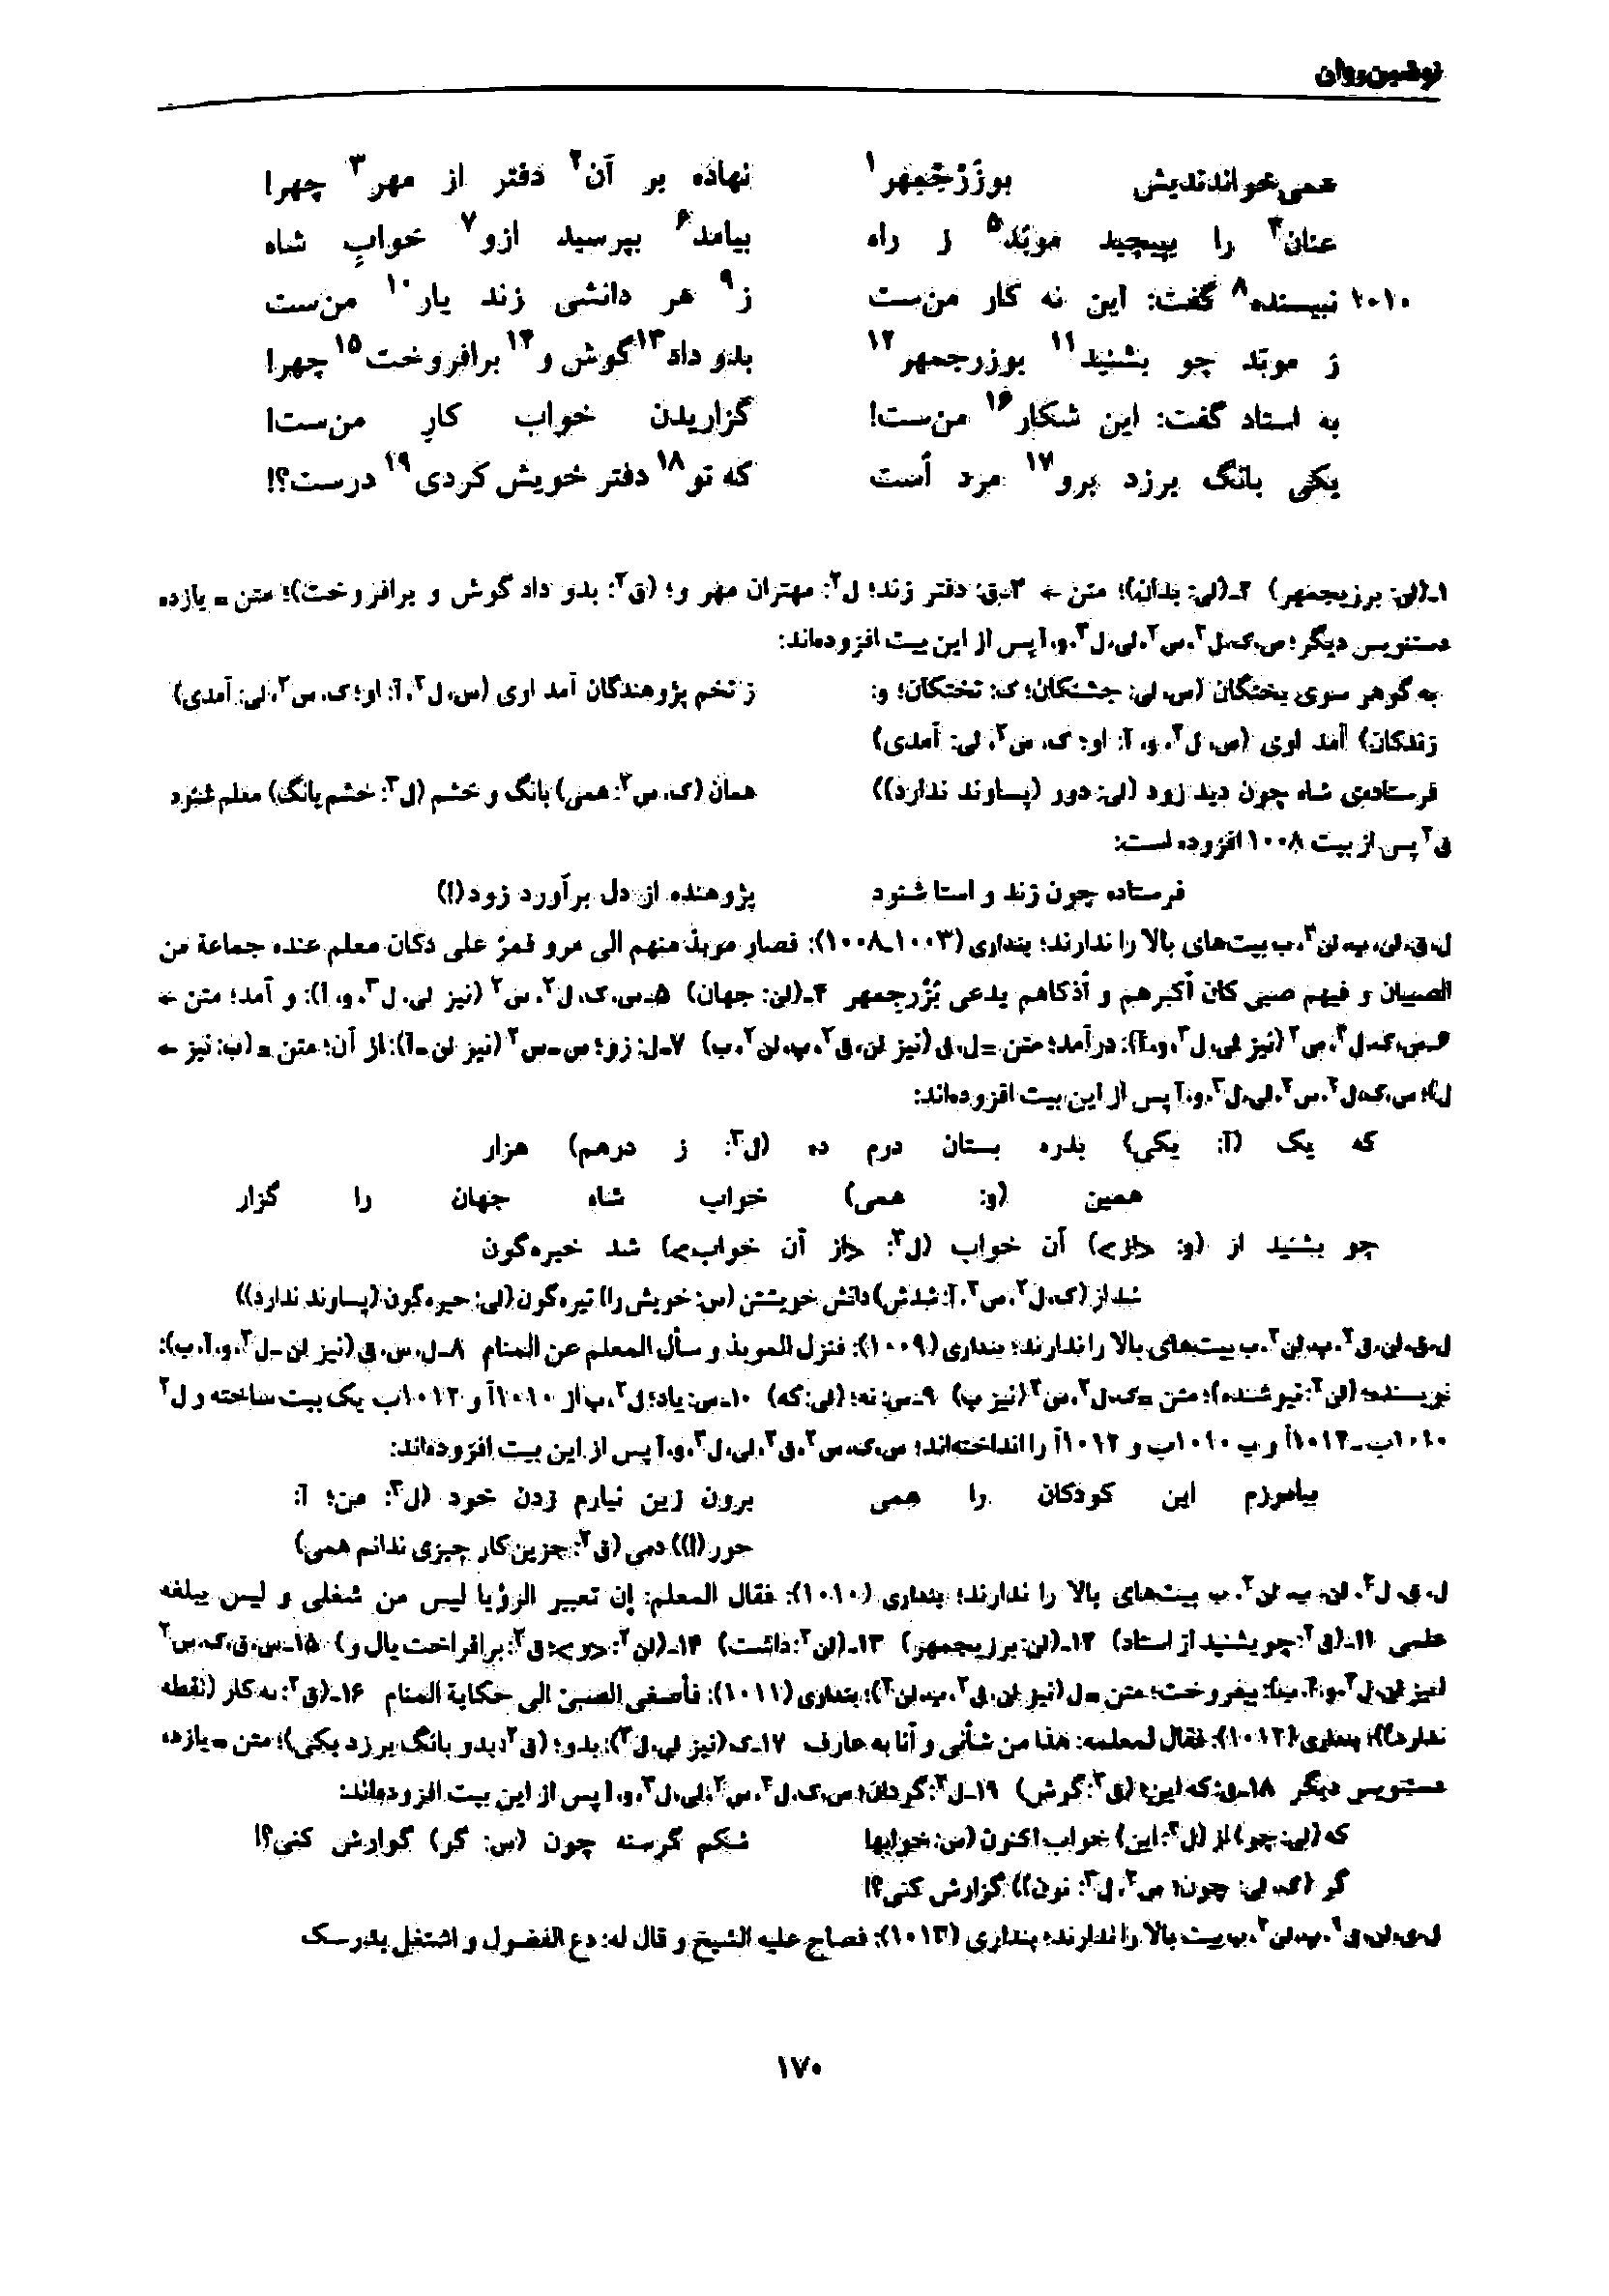 نوشین‌روان
همی‌خواندندیش بوزرجمهر۱ نهاده بر آن۲ دفتر از مهر۳ چهرا
عنان۴ را بپیچید موبد۵ ز راه بیامد۶ بپرسید ازو۷ خوابِ شاه
۱۰۱۰ نبیسنده۸ گفت: این نه کار من‌ست ز۹ هر دانشی زند یار۱۰ من‌ست
ز موبد چو بشنید۱۱ بوزرجمهر۱۲ بدو داد۱۳ گوش و۱۴ برافروخت۱۵ چهرا
به استاد گفت: این شکار۱۶ من‌ست! گزاریدن خواب کارِ من‌ست!
یکی بانگ برزد برو۱۷ مرد اُست که تو۱۸ دفتر خویش کردی۱۹ درست؟!
۱ـ(لن: برزیجمهر) ۲ـ(لی: بدان)؛ متن ← ۳ـ ق: دفتر زند؛ ل۲: مهتران مهر و؛ (ق۲: بدو داد گوش و برافروخت)؛ متن = یازده
دستنویس دیگر؛ س، ک، ل۲، س۲، لی، ل۳، و، آ پس از این بیت افزوده‌اند:
به گوهر سوی بختگان (س، لی: جشنکان؛ ک: تختکان؛ و: ز تخم پژوهندگان آمد اوی (س، ل۲، آ: او؛ ک، س۲، لی: آمدی)
زندکان) آمد اوی (س، ل۲، و، آ: او؛ ک، س۲، لی: آمدی)
فرستاده‌ی شاه چون دید زود (لی: دور (پساوند ندارد)) همان (ک، س۲: همی) بانگ و خشم (ل۳: خشم بانگ) معلم شنود
ق۲ پس از بیت ۱۰۰۸ افزوده است:
فرستاده چون زند و استا شنود پژوهنده از دل برآورد زود (!)
ل، ق، لن، پ، لن۲، ب بیت‌های بالا را ندارند؛ بنداری (۱۰۰۳ـ۱۰۰۸): فصار موبذ منهم الی مرو فمرّ علی دکان معلم عنده جماعة من
الصبیان و فیهم صبی کان أکبرهم و أذکاهم یدعی بُزُرجمهر ۴ـ(لن: جهان) ۵ـ س، ک، ل۲، س۲ (نیز لی، ل۳، و، آ): و آمد؛ متن ←
۶ـ س، ک، ل۲، س۲ (نیز لی، ل۳، و، آ): درآمد؛ متن = ل، ق (نیز لن، ق۲، پ، لن۲، ب) ۷ـ ل: زو؛ س ـ س۲ (نیز لن ـ آ): از آن؛ متن = (ب؛ نیز ←
ل)؛ س، ک، ل۲، س۲، لی، ل۳، و، آ پس از این بیت افزوده‌اند:
که یک (آ: یکی) بدره بستان درم ده (ل۳: ز درهم) هزار
همین (و: همی) خواب شاه جهان را گزار
چو بشنید از (و: <از>) آن خواب (ل۲: <از آن خواب>) شد خیره‌گون
شد از (ک، ل۲، س۲، آ: شدش) دانش خویشتن (س: خویش را) تیره‌گون (لی: حیره‌گون (پساوند ندارد))
ل، ق، لن، ق۲، پ، لن۲، ب بیت‌های بالا را ندارند؛ بنداری (۱۰۰۹): فنزل الموبذ و سأل المعلم عن المنام ۸ـ ل، س، ق (نیز لن ـ ل۳، و، آ، ب):
نویسنده (لن۲: نیوشنده)؛ متن = ک، ل۲، س۲ (نیز پ) ۹ـ س: نه؛ (لی: که) ۱۰ـ س: یاد؛ ل۲، ب از ۱۰۱۰آ و ۱۰۱۲ب یک بیت ساخته و ل۲
۱۰۱۰ب ـ ۱۰۱۲آ و ب ۱۰۱۰ب و ۱۰۱۲آ را انداخته‌اند؛ س، ک، س۲، ق۲، لی، ل۳، و، آ پس از این بیت افزوده‌اند:
بیاموزم این کودکان را همی برون زین نیارم زدن خود (ل۳: من؛ آ:
حور (!)) دمی (ق۲: جزین کار چیزی ندانم همی)
ل، ق، ل۲، لن، پ، لن۲، ب بیت‌های بالا را ندارند؛ بنداری (۱۰۱۰): فقال المعلم: إن تعبیر الرؤیا لیس من شغلی و لیس یبلغه
علمی ۱۱ـ(ق۲: چو بشنید از استاد) ۱۲ـ(لن: برزیجمهر) ۱۳ـ(لن۲: داشت) ۱۴ـ(لن۲: <و>؛ ق۲: برافراخت یال و) ۱۵ـ س، ق، ک، س۲
(نیز لن، ل۳، و، آ، ب): بیفروخت؛ متن = ل (نیز لن، ق۲، پ، لن۲)؛ بنداری (۱۰۱۱): فأصغی الصبیّ الی حکایة المنام ۱۶ـ(ق۲: به کار (نقطه
ندارد))؛ بنداری (۱۰۱۲): فقال لمعلمه: هذا من شأنی و أنا به عارف ۱۷ـ ک (نیز لی، ل۳): بدو؛ (ق۲ بدو بانگ برزد یکی)؛ متن = یازده
دستنویس دیگر ۱۸ـ ق: که این؛ (ق۲: گرش) ۱۹ـ ل۲: گردان؛ س، ک، ل۲، س۲، لی، ل۳، و، آ پس از این بیت افزوده‌اند:
که (لی: چو) از (ل۳: این) خواب اکنون (س: خوابها شکم گرسنه چون (س: گر) گوارش کنی؟!
گر (ک، لی: چون؛ س۲، ل۳: نون)) گزارش کنی؟!
ل، ق، لن، ق۲، پ، لن۲، ب بیت بالا را ندارند؛ بنداری (۱۰۱۳): فصاح علیه الشیخ و قال له: دع الفضول و اشتغل بدرسک
۱۷۰